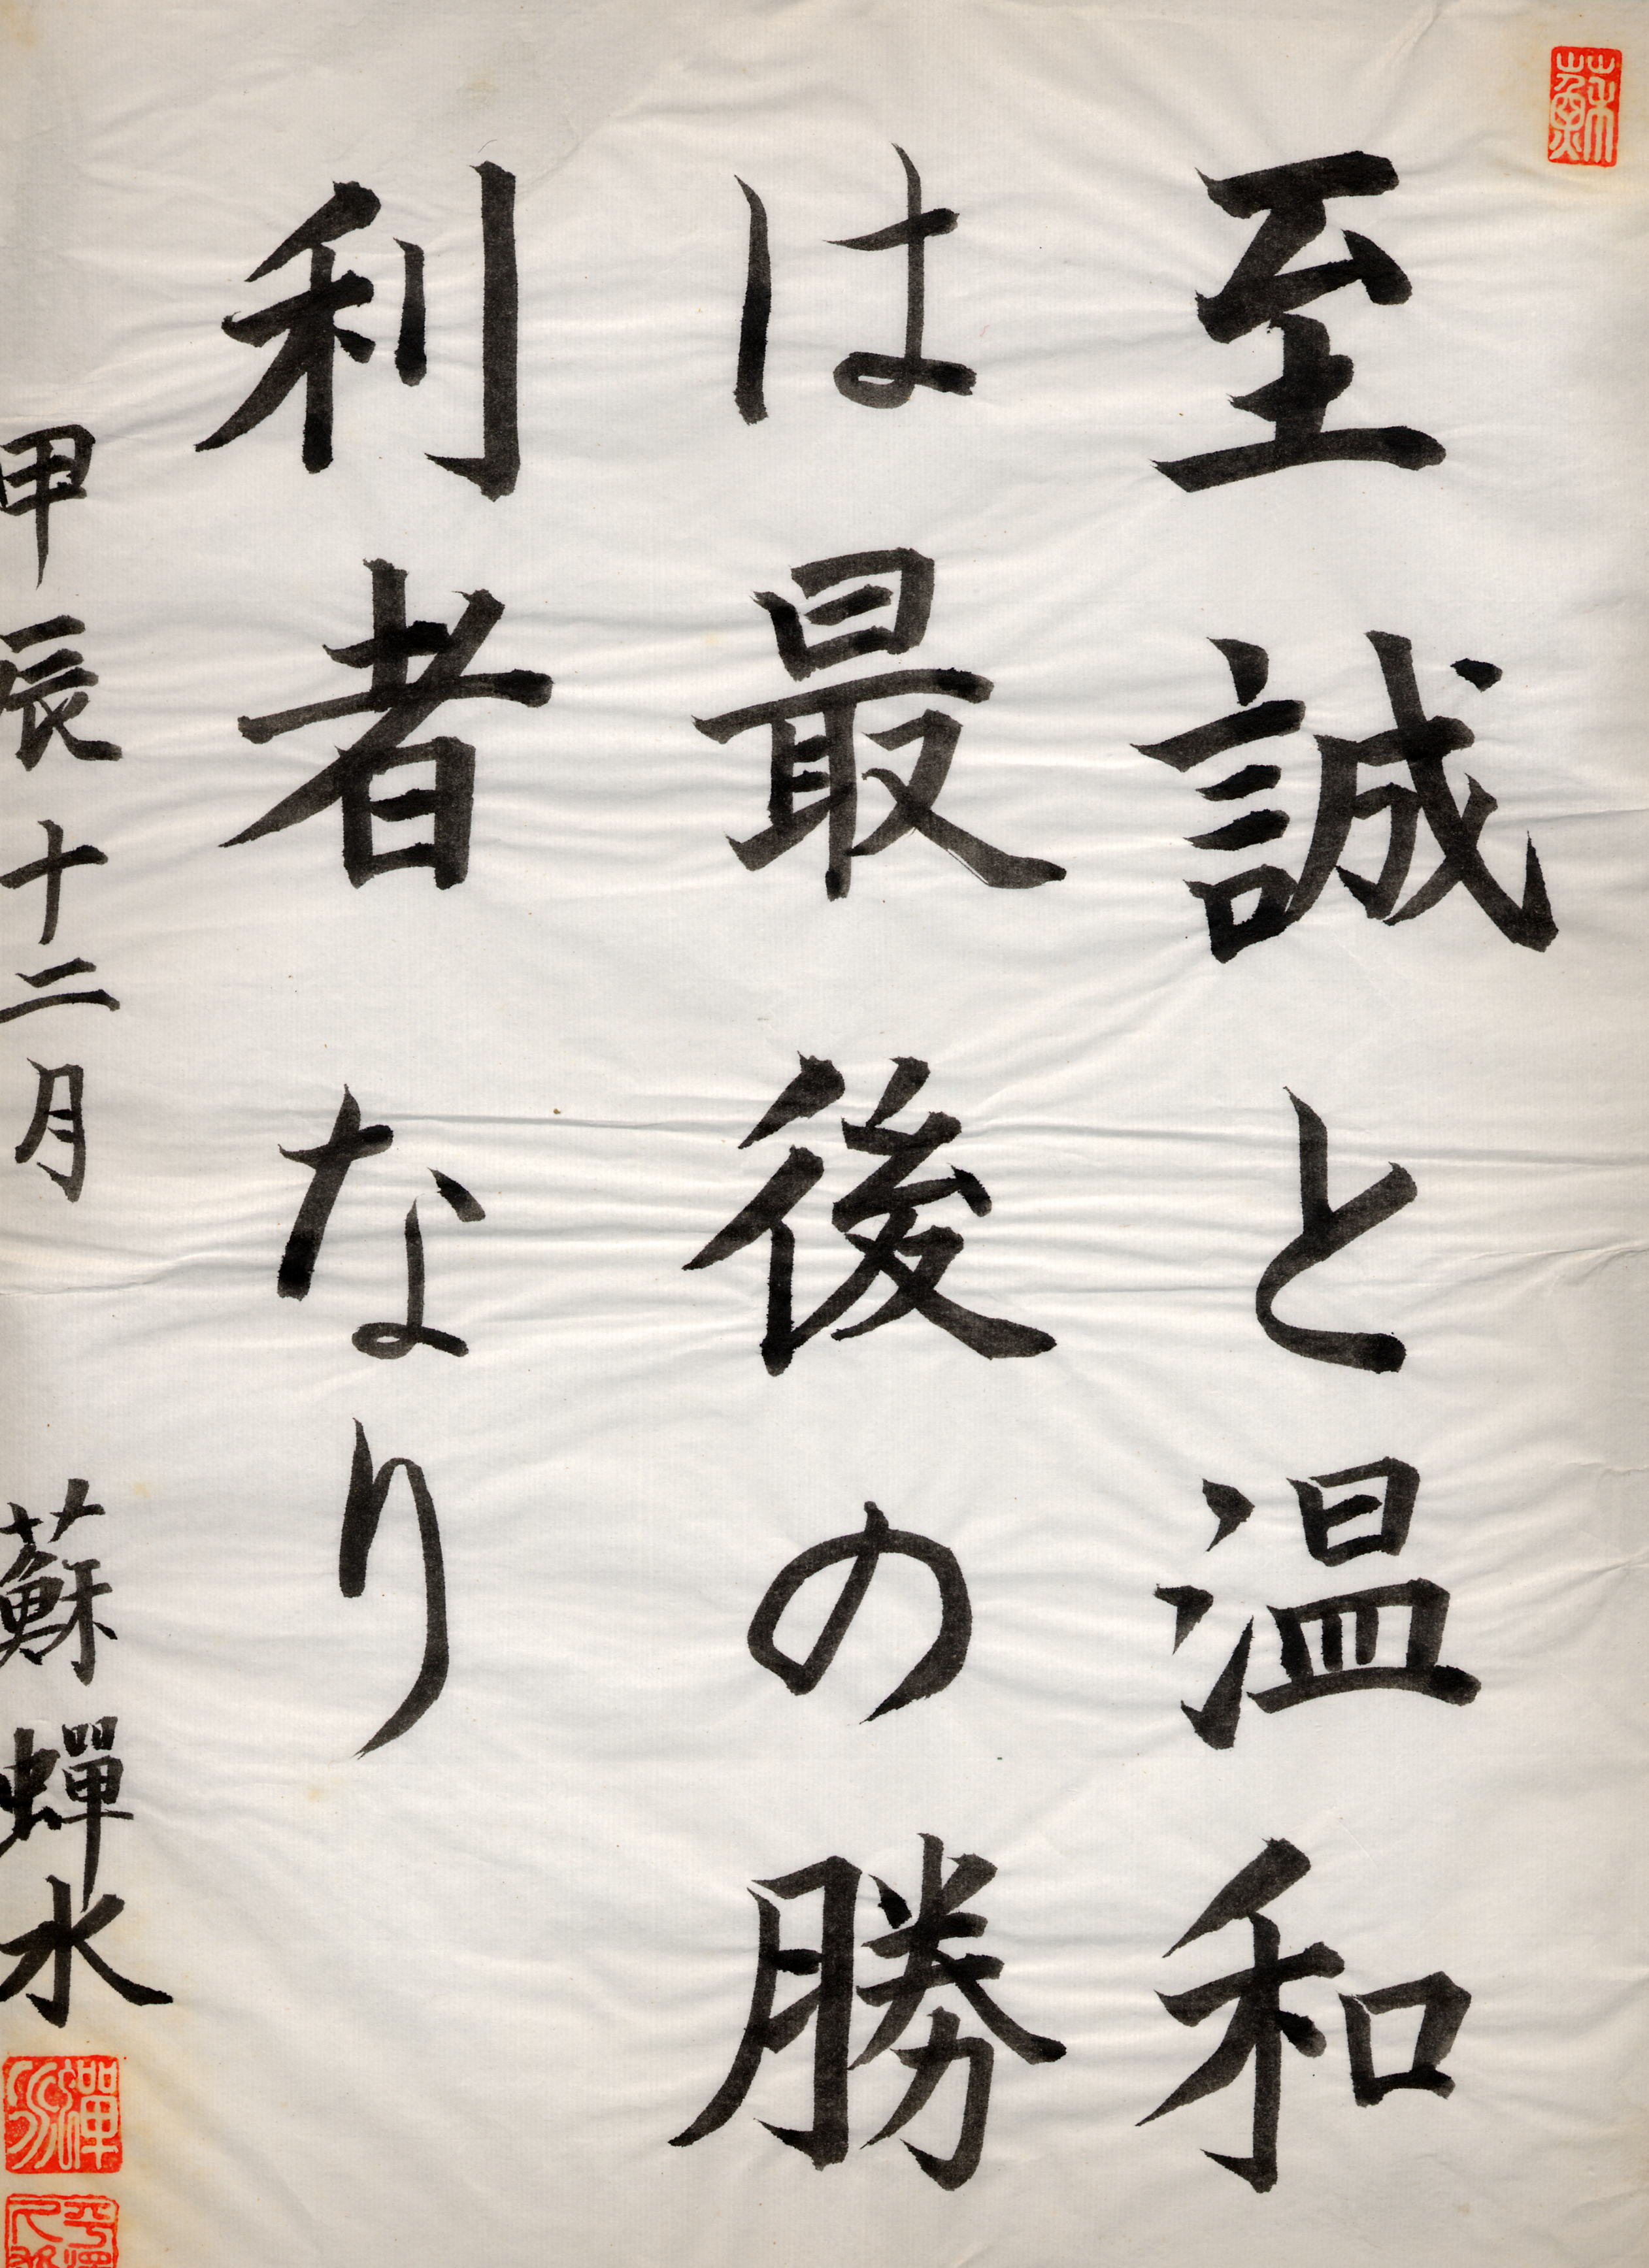 蘇
至誠と温和
は最後の勝
利者なり
甲辰十二月
蘇蟬水